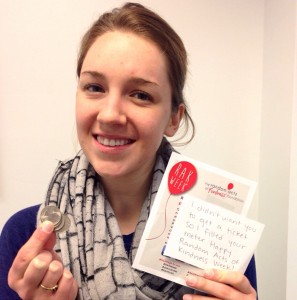 RAK
WEEK
the random acts
of kindness foundation
I didn't want you
to get a ticket
so I filled your
meter. Happy
Random Acts of
Kindness Week!